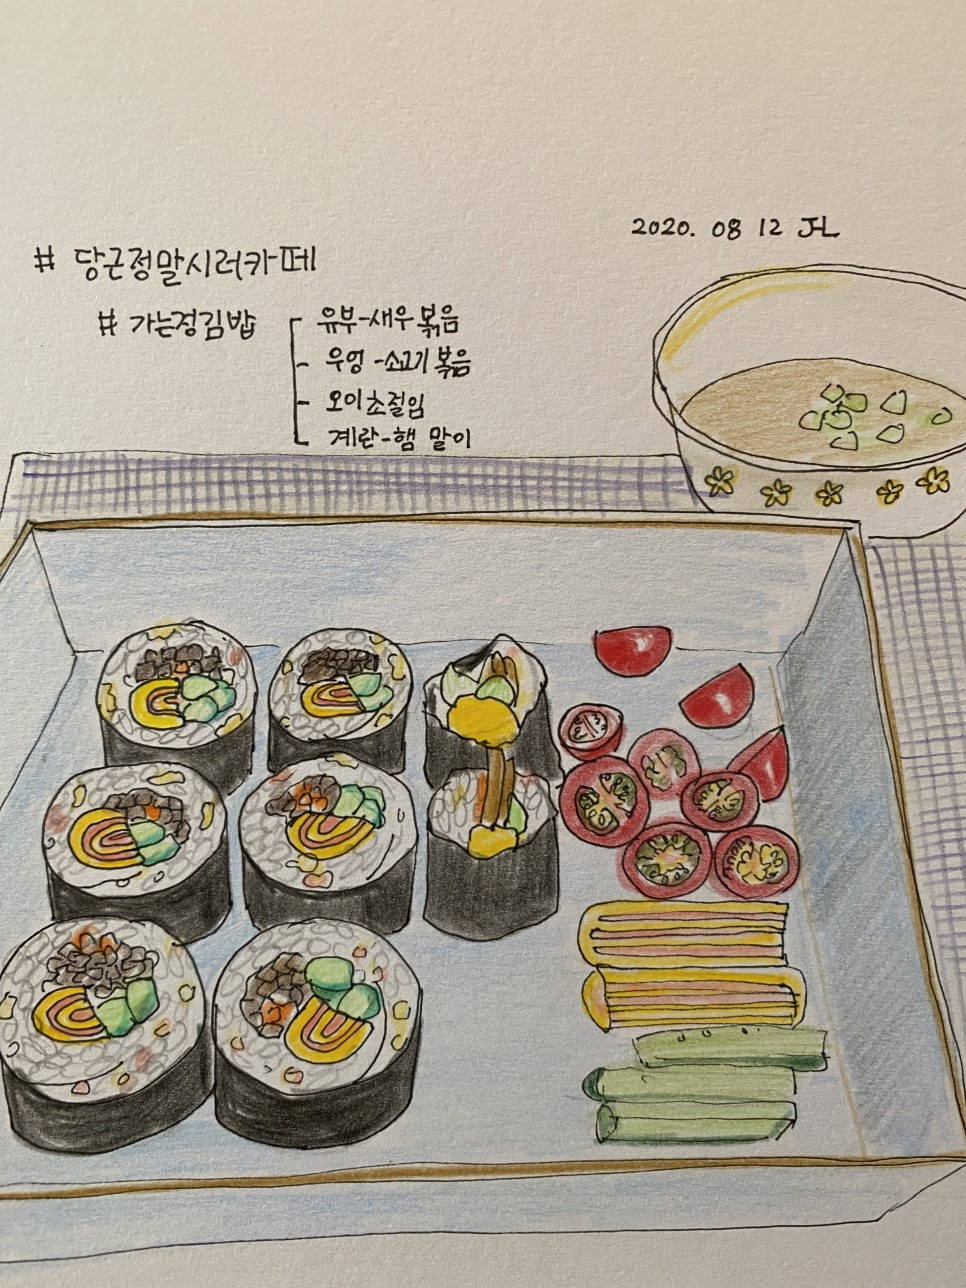 2020. 08 12 JHL
# 당근정말시러카페
# 가는정김밥
유부-새우볶음
우엉-소고기볶음
오이초절임
계란-햄 말이